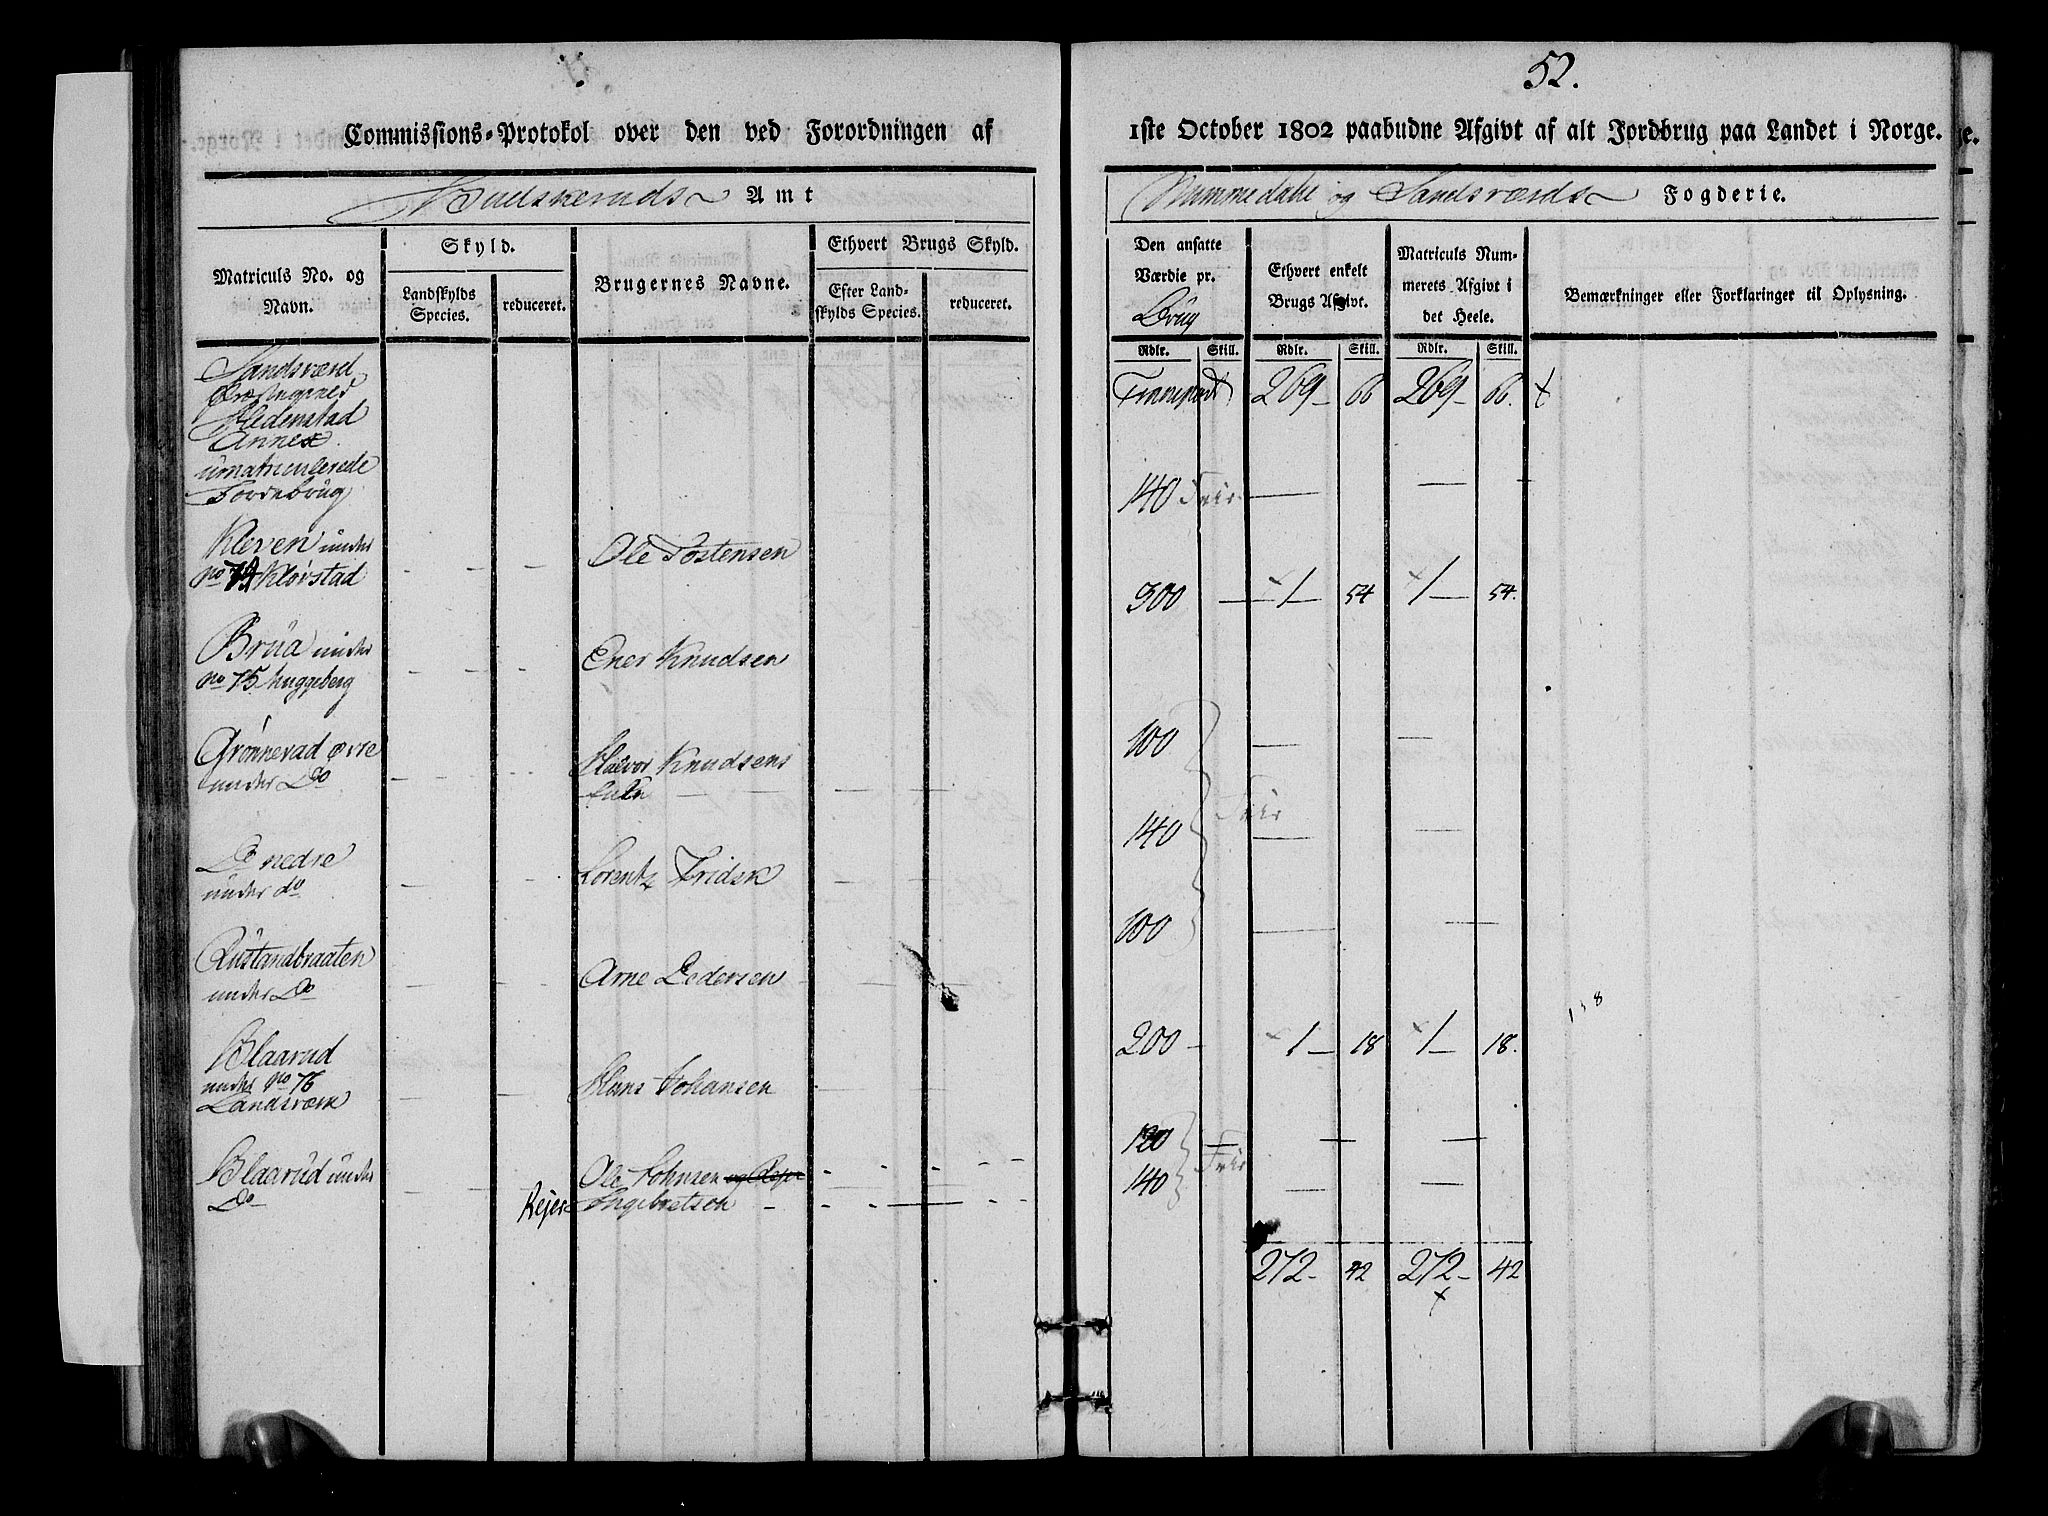 52.
Commissions-Protokol over den ved Forordningen af
1ste October 1802 paabudne Afgivt af alt Jordbrug paa Landet i Norge.
Buskeruds Amt
Nummedahl og Sandsværds Fogderie.
Matriculs No. og
Navn.
Skyld.
Landskylds
Species.
reduceret.
Brugernes Navne.
Ethvert Brugs Skyld.
Efter Land-
skylds Species.
reduceret.
Den ansatte
Værdie pr.
Brüg
Ethvert enkelt
Brugs Afgivt.
Matriculs Num-
merets Afgivt i
det Heele.
Bemærkninger eller Forklaringer til Oplysning.
Rdlr. Skill. Rdlr. Skill. Rdlr. Skill.
Sandsværd
Præstegields
Hedenstad
Annex
umatriculerede
Jordebrüg
Transport 269 – 66 269 – 66.
Kleven under
no 74 Kløvstad
Ole Tostensen
140 Frir
Brüa under
no 75 huggeberg
Ener Knudsen
300 – 1 – 54 1 – 54.
Grønnevad øvre
under Do
Halvor Knudsens
Enke
100
Do nedre
under do
Lorentz Fridsk
140 Frir
Rustandbraaten
under Do
Arne Pedersen
100
Blaarud
under no 76
Landsværk
Hans Johansen
200 – 1 – 18 1 – 18.
Blaarud under
Do
Ole Johnsen og Rejer
Rejer Ingebretsen
120
140 Frir
272 – 42 272 – 42